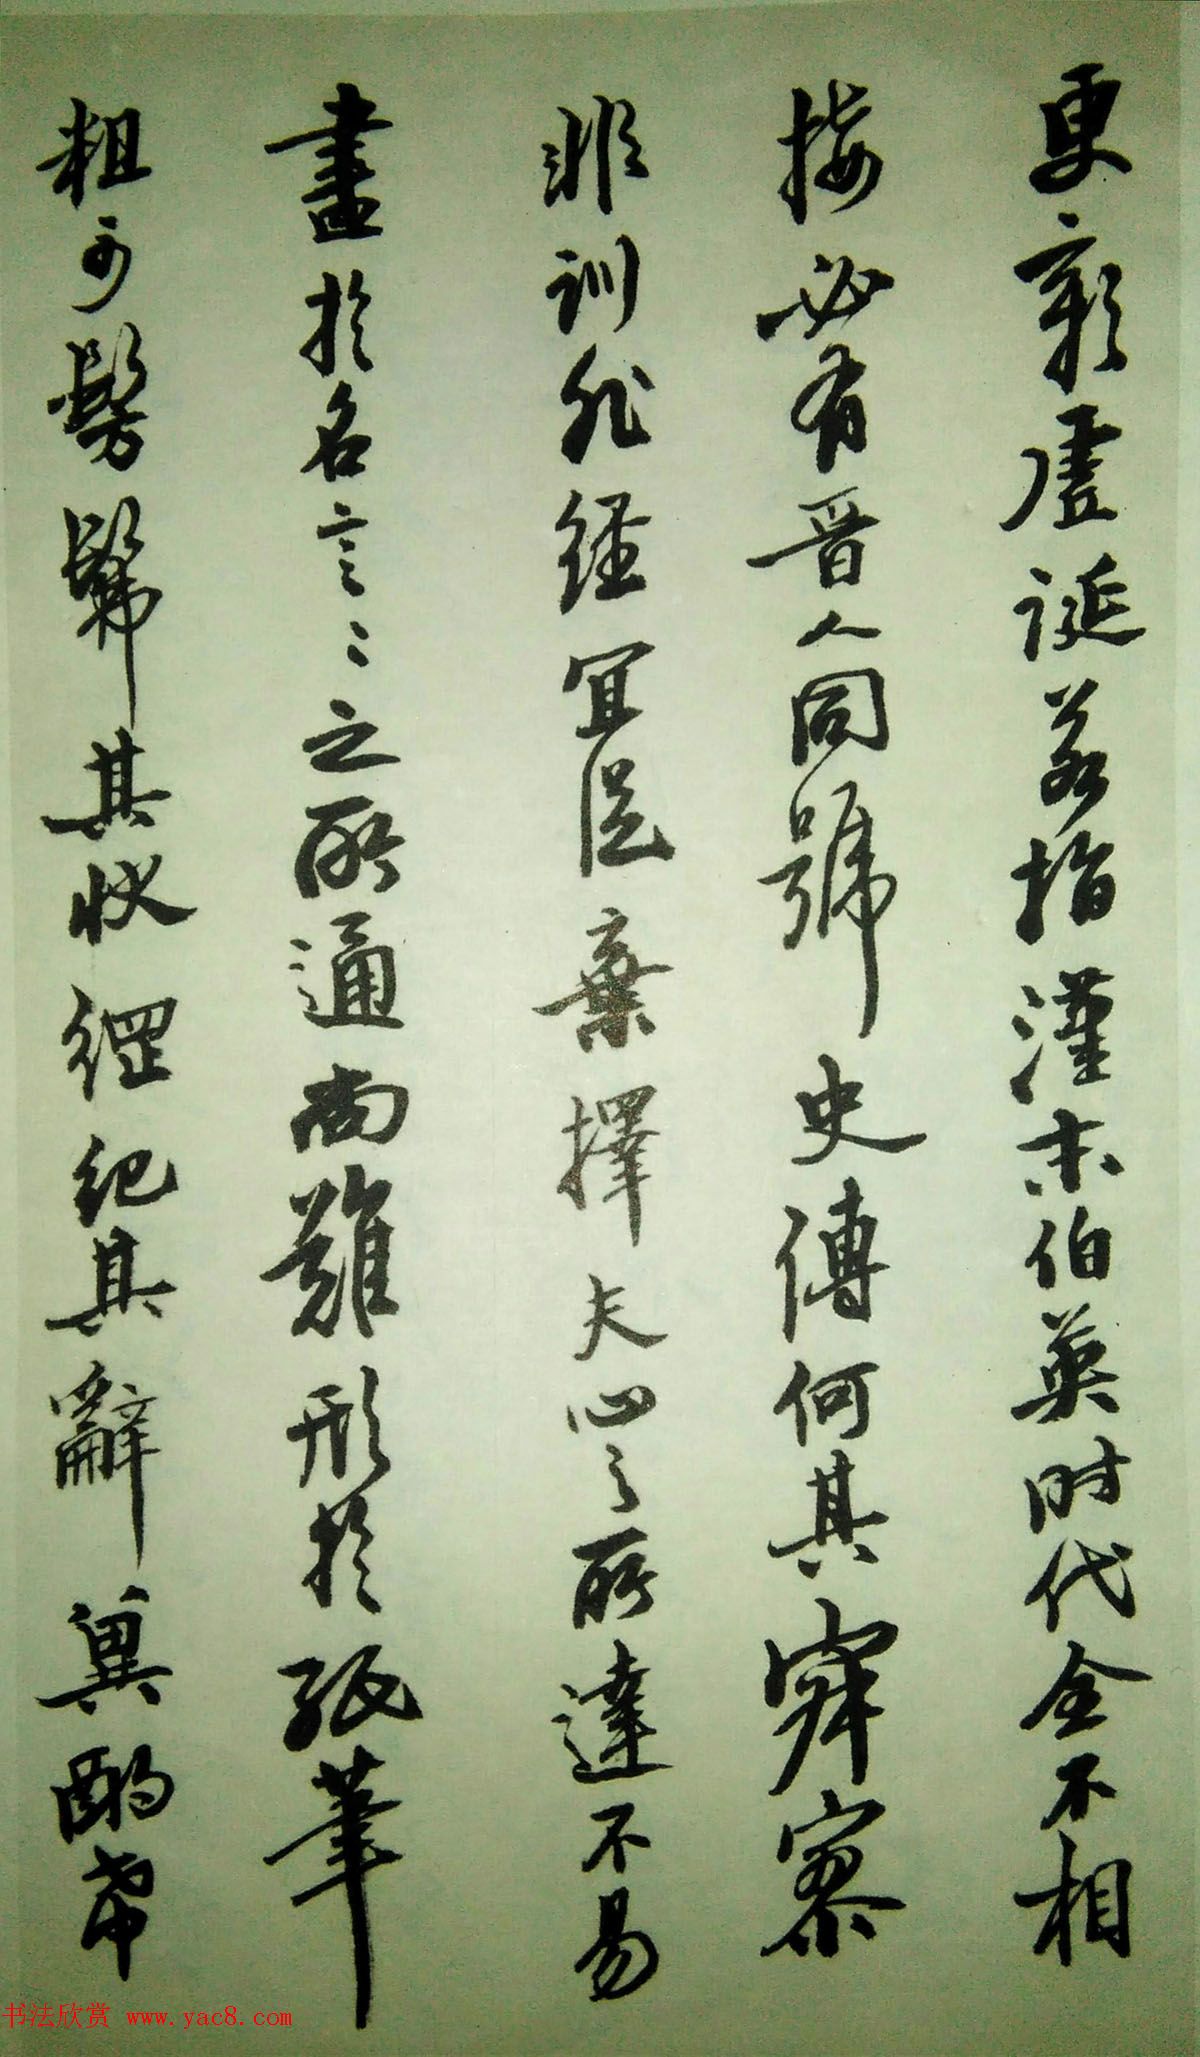 更彰虛誕若指漢末伯英时代全不相
接必有晋人同號史傳何其寥寥
非訓非經宜從棄擇夫心之所達不易
盡於名言言之所通尚難形於紙筆
粗可髣髴其狀綱紀其辭冀酌希
书法欣赏 www.yac8.com